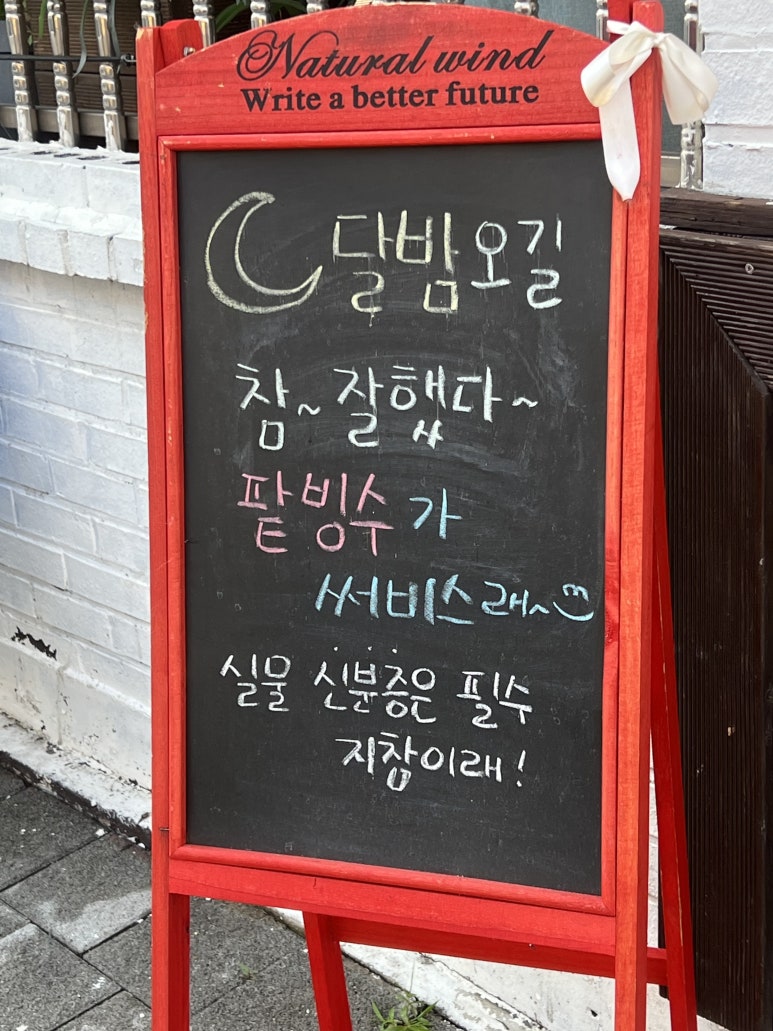 Natural wind
Write a better future
달밤오길
참~ 잘했다~
팥빙수가
써비스래~
실물 신분증은 필수
지참이래!